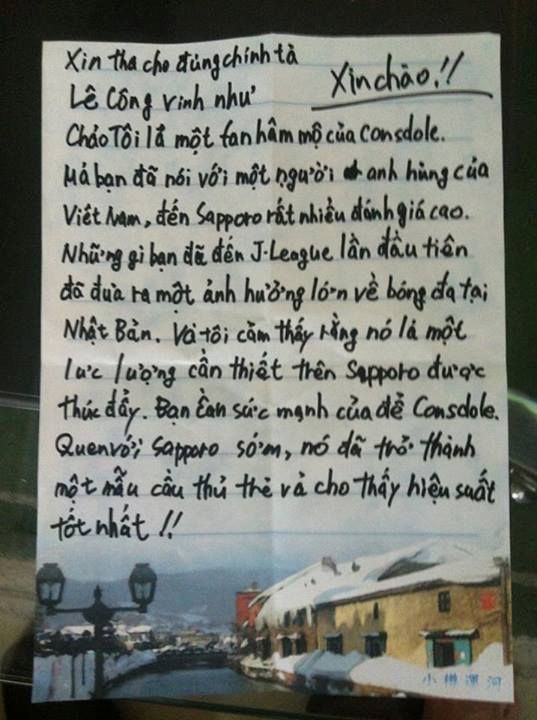 Xin tha cho đúng chính tả
Xin chào!!
Lê Công vinh như
Chảo Tôi lầ một fan hâm mộ của consdole.
Mả bạn đã nói với một người anh hùng của
Việt Nam, đến Sapporo rất nhiều đánh giá cao.
Những gì bạn đã đến J-League lần đầu tiên
đã đưa ra một ảnh hưởng lớn về bóng đạ tại
Nhật Bản. Và tôi cảm thấy rằng nó là một
lực lượng cần thiết trên Sapporo được
thúc đẩy. Bạn cần sức mạnh của để Consdole.
Quen với Sapporo sớm, nó đã trở thành
một mẫu cầu thủ thẻ và cho thấy hiệu suất
tốt nhất!!
小樽運河